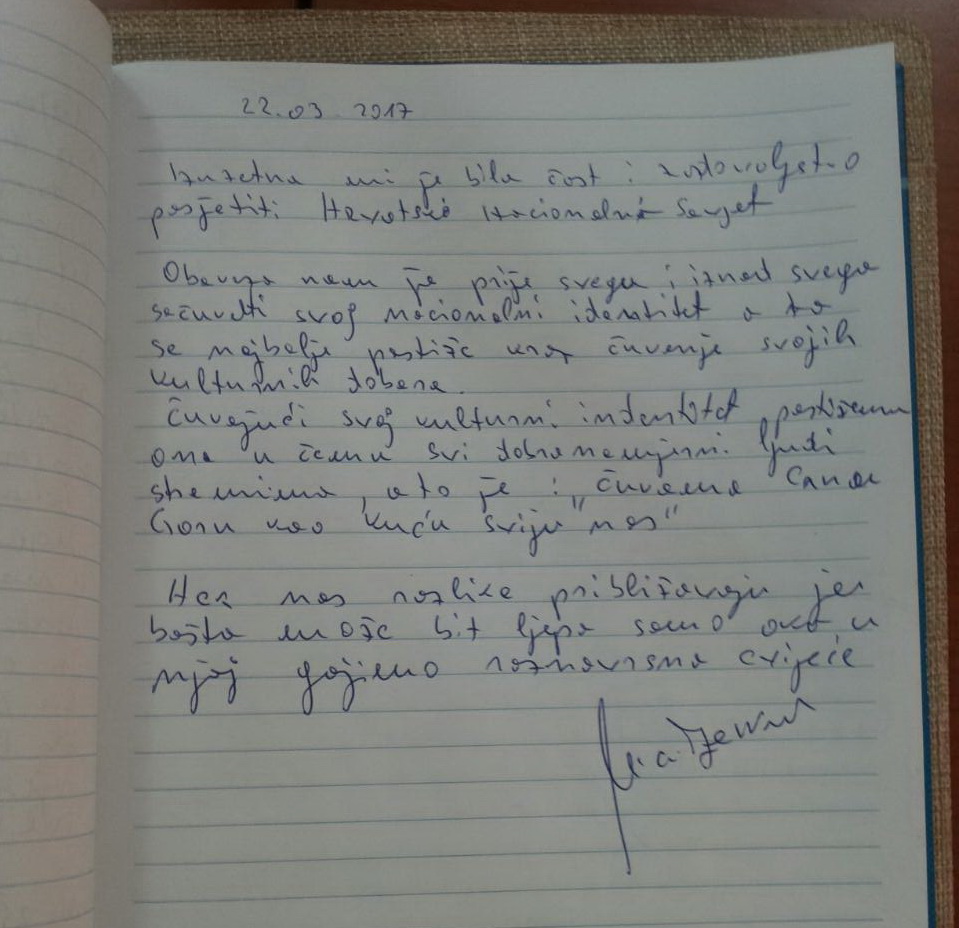 22.03 2017
Izuzetna mi je bila čast i zadovoljstvo
posjetiti Hrvatsko nacionalno Savjet
Obaveza nam je prije svega i iznad svega
sačuvati svoj nacionalni identitet a to
se najbolje postiže kroz čuvanje svojih
kulturnih dobara.
Čuvajući svoj kulturni indentitet postižemo
ono u čemu svi dobronamjerni ljudi
streminmo, a to je i „čuvamo Crnu
Goru kao kuću sviju nas"
Nek nas razlike približavaju jer
bašta može bit ljepa samo ako u
njoj gojimo raznovrsno cvijeće